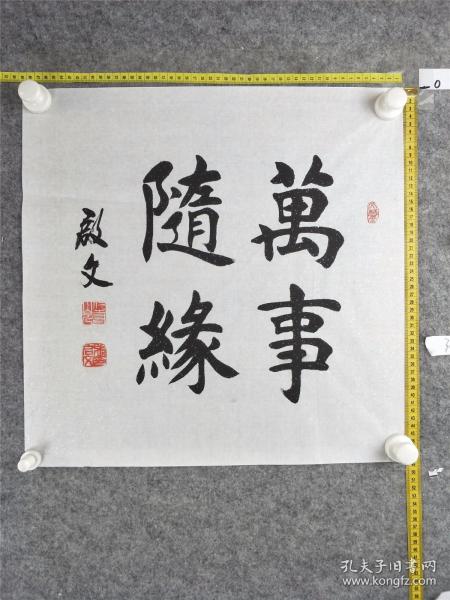 萬事
隨緣
啟文
孔夫子旧书网
www.kongfz.com